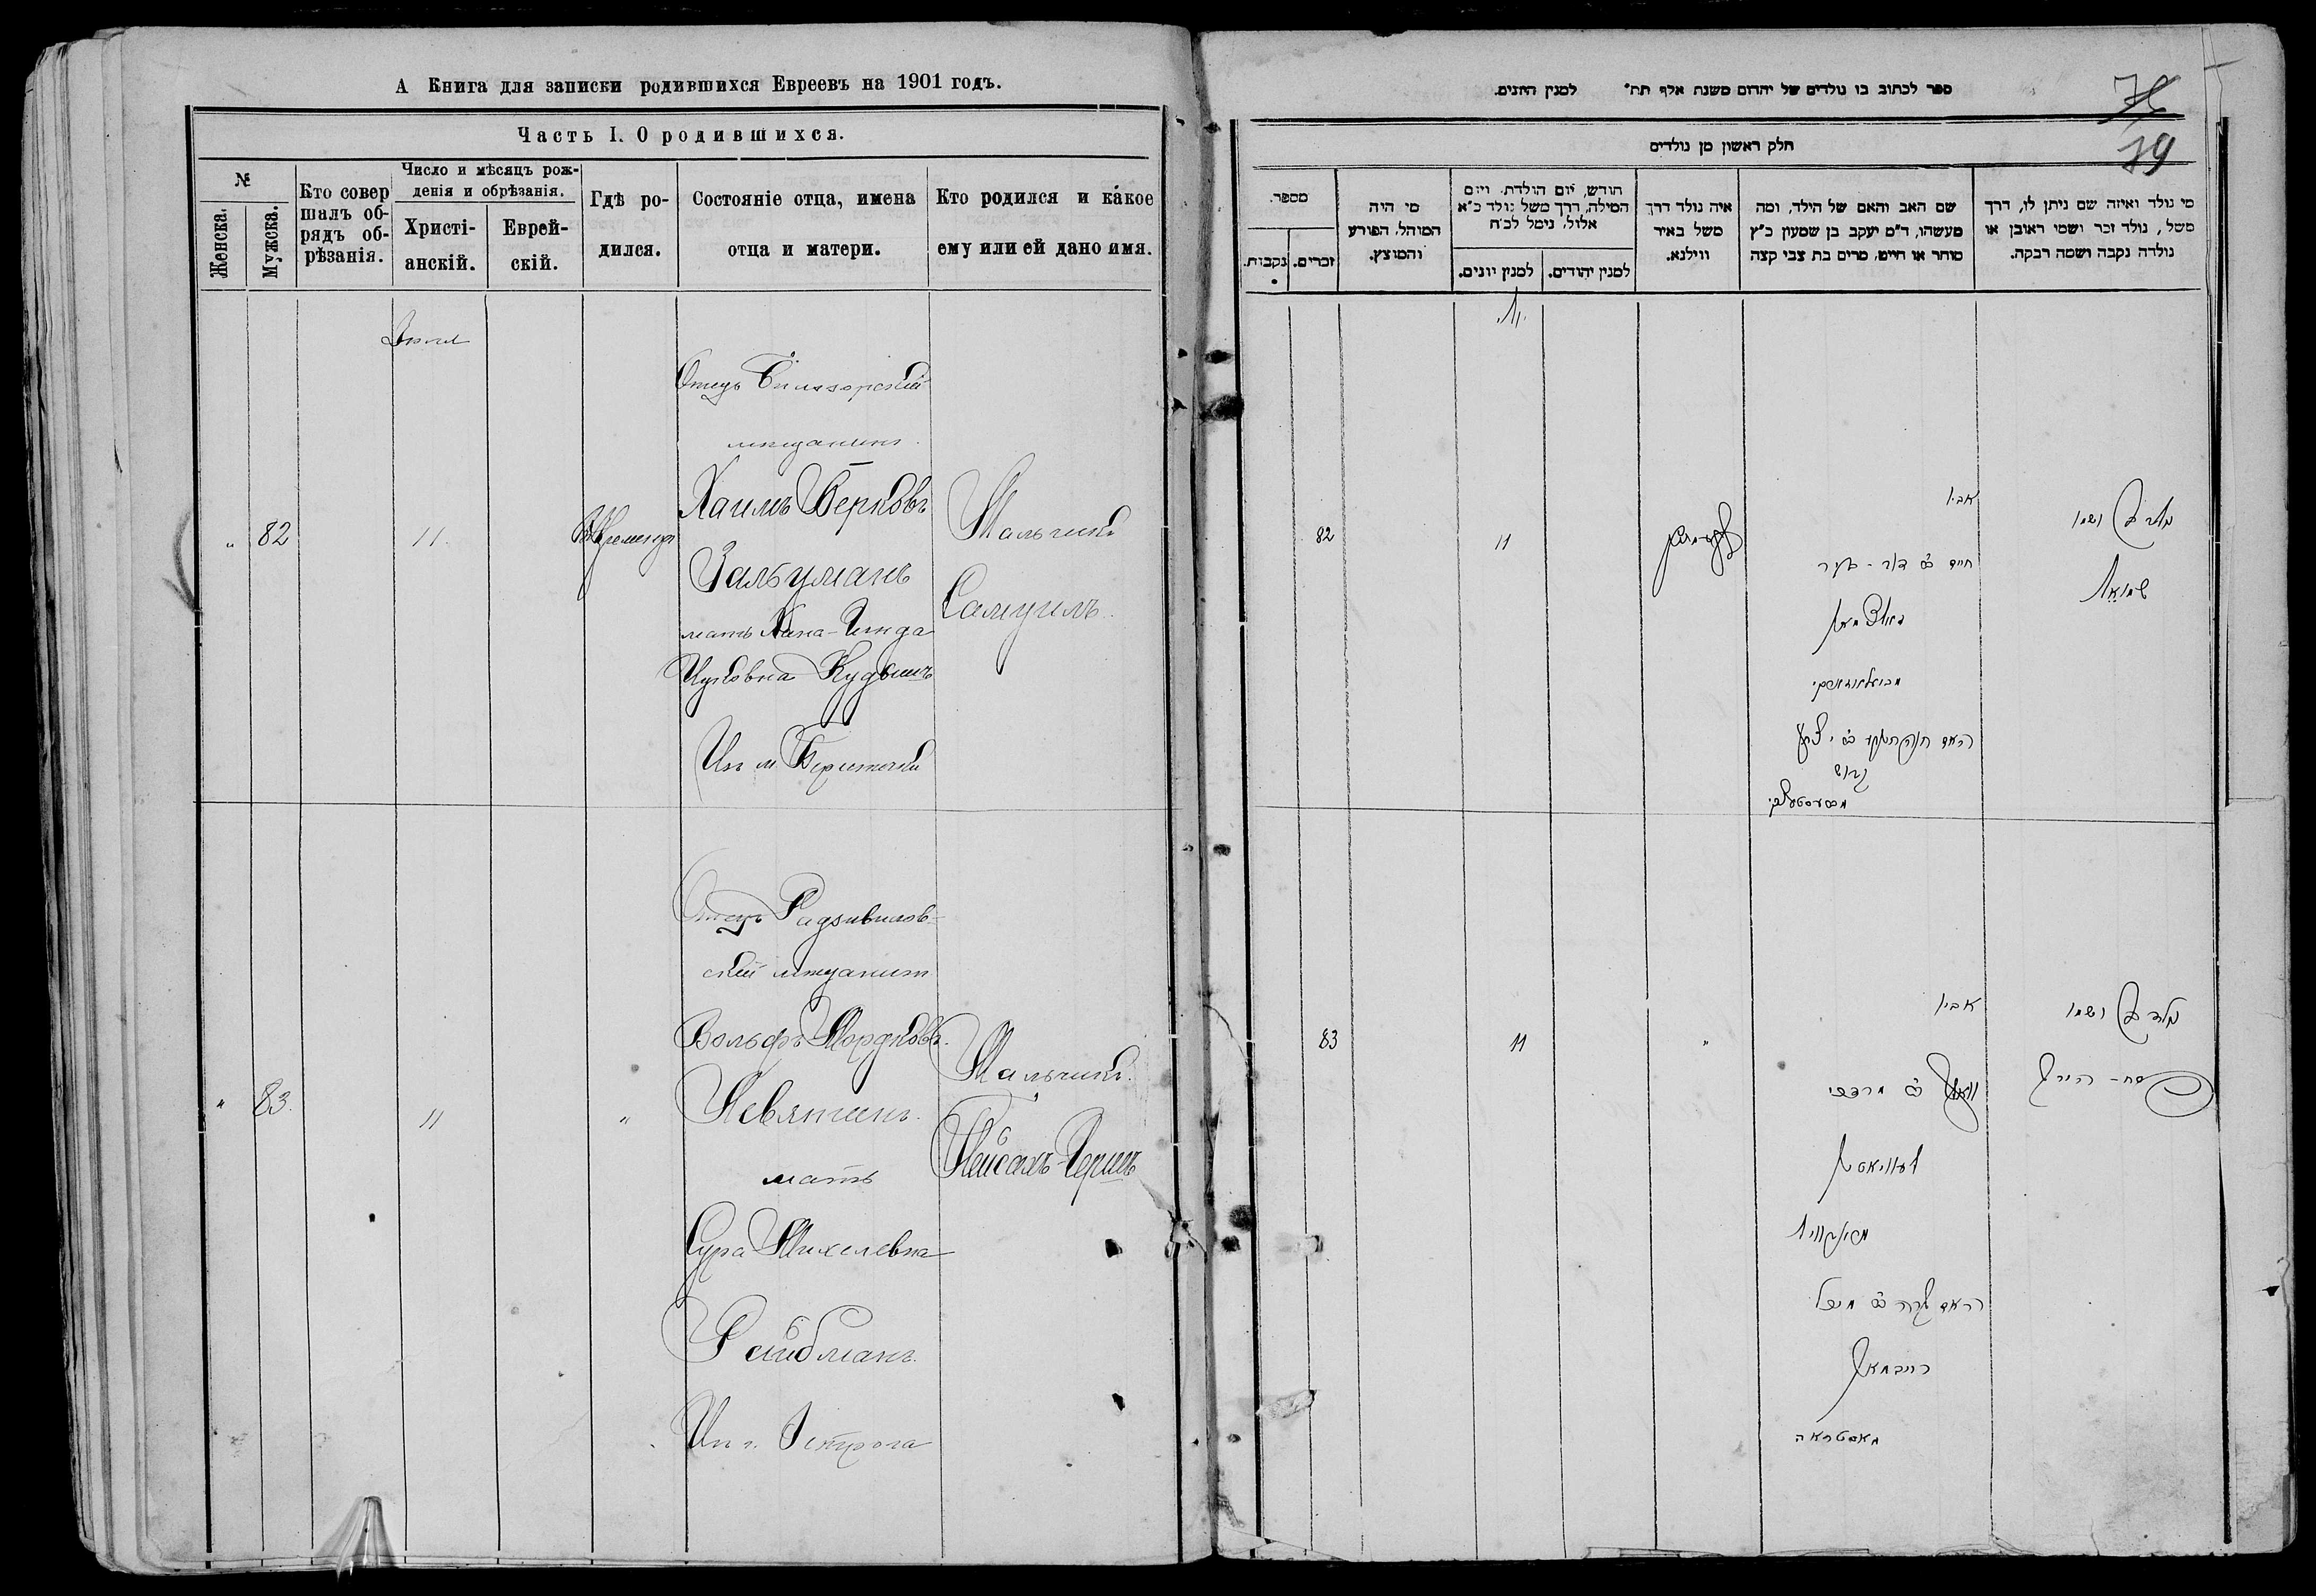 А Книга для записки родившихся Евреевъ на 1901 годъ.
Часть I. О родившихся.
№
Женска.
Мужска.
Кто совер
шалъ об-
рядъ об-
рѣзанія.
Число и мѣсяцъ рож-
денія и обрѣзанія.
Христі-
анскій.
Еврей-
скій.
Гдѣ ро-
дился.
Состояніе отца, имена
отца и матери.
Кто родился и какое
ему или ей дано имя.
Отецъ
мещанинъ
82
11
Хаимъ Берковъ
Зальцманъ
мать Хана-
Ицковна
Из м.
Мальчикъ
Самуилъ
Отецъ Радзивилов-
скій мещанин
Вольфъ Мордковъ
Невятинъ
мать
Сура Михелевна
Рейбманъ
Из г. Острога
83
11
Мальчикъ
Пейсахъ-Гершъ
ספר לכתוב בו נולדים של יהודים משנת אלף תת״ למנין היונים.
79
חלק ראשון מן נולדים
מספר.
נקבות.
זכרים.
מי היה
המוהל, הפורע
והמוצץ.
חודש, יום הולדת, ויום
המילה, דרך משל נולד כ״א
אלול, נימל לכ״ח
למנין יונים.
למנין יהודים.
איה נולד דרך
משל באיר
ווילנא.
שם האב והאם של הילד, ומה
מעשהו, ד״מ יעקב בן שמעון כ״ץ
סוחר או חייט, מרים בת צבי קצה
מי נולד ואיזה שם ניתן לו, דרך
משל, נולד זכר ושמו ראובן או
נולדה נקבה ושמה רבקה.
82
11
אביו
חיים ב׳
זאלצמאן
האם
נולד זכר ושמו
שמואל
83
11
אביו
וואלף ב׳ מרדכי
נעוויאטין
האם שרה ב׳ מיכל
רייבמאן
מאסטראה
נולד זכר ושמו
פסח - הירש